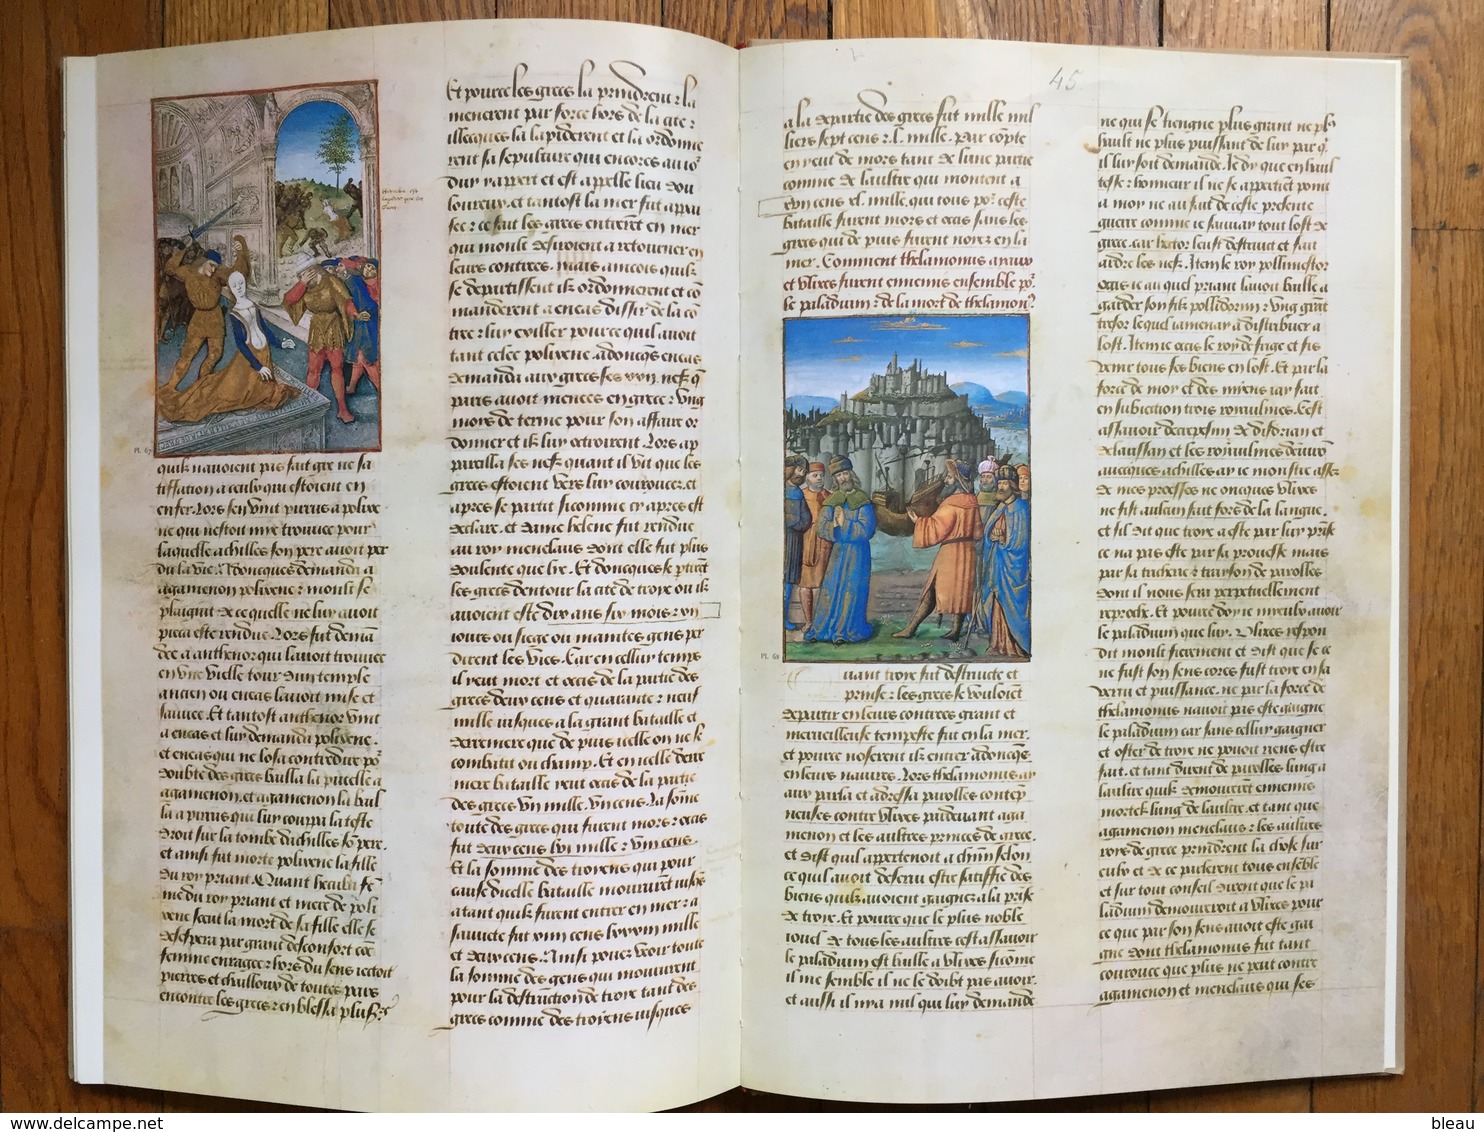 quilz navoient pas fait gre ne sa
tiffation a ceulx qui estoient en
enfer. Lors sen vint pirrus a polixe
ne qui nestoit mye trouuee pour
laquelle achilles son pere auoit per
du la vie. Adoncques demanda a
agamenon polixene. moult se
plaignt de ce quelle ne luy auoit
pieca este rendue. Lors fut deman
dee a anthenor qui lauoit trouuee
en vne vielle tour dun temple
ancien ou eneas lauoit mise et
sauuee. Et tantost anthenor vint
a eneas et luy demanda polixene.
et eneas qui ne losa contredire por
doubte des grecs bailla la pucelle a
agamenon. et agamenon la bail
la a pirrus qui luy couppa la teste
droit sur la tombe dachilles son pere.
et ainsi fut morte polixene la fille
du roy priant. Quant hecuba fem
me du roy priant et mere de poli
xene sceut la mort de sa fille elle se
desespera par grant desconfort com
femme enragee hors du sens iectoit
pierres et chailloux de toutes pars
encontre les grecs en blessa plus
Pl. 67
Et pource les grecs la prindrent la
menerent par force hors de la cite
illecques la lapiderent et la ordonne
rent sa sepulture qui encores au ior
duy appert et est appelle lieu dou
loureux. et tantost la mer fut appai
see ce fait les grecs entrerent en mer
qui moult desiroient a retourner en
leurs contrees. mais aincois quilz
se departissent ilz ordonnerent et com
manderent a eneas dissir de la con
tree luy exiller pource quil auoit
tant celee polixene. adoncques eneas
demanda aux grecs ses xxii nefz que
paris auoit menees en grece vng
mois de terme pour son affaire or
donner et ilz luy octroierent. Lors ap
pareilla ses nefz quant il vit que les
grecs estoient vers luy courrouces. et
apres se partit si comme cy apres est
declare. et dame helene fut rendue
au roy menelaus dont elle fut plus
doulente que lye. Et doncques se partirent
les grecs dentour la cite de troye ou ilz
auoient este dix ans six mois xii
iours ou siege ou maintes gens per
dirent les vies. Car en celluy temps
il yeut mort et occis de la partie des
grecs deux cens et quarante neuf
mille iusques a la grant bataille et
derreniere que de puis icelle on ne se
combatit ou champ. Et en icelle derre
niere bataille yeut occis de la partie
des grecs vn mille. vn cens. La somme
toute des grecs qui furent mors occis
fut deux cens lvi mille vn cens.
Et la somme des troyens qui pour
cause dicelle bataille moururent iusques
a tant quilz furent entrer en mer a
sauuete fut
et deux cens. Ainsi pouez veoir toute
la somme des gens qui moururent
pour la destruction de troye tant des
grecs comme des troyens iusques
45
a la departie des grecs fut mille mil
liers sept cens l. mille. par compte
en yeut de mors tant de lune partie
comme de laultre qui montent a
xvii cens xl. mille. qui tous por ceste
bataille furent mors et occis sans les
grecs qui de puis furent noyez en la
mer. Comment thelamonius ayaux
et vlixes furent ennemis ensemble por
le paladium de la mort de thelamon
Pl. 68
uant troye fut destructe et
prinse les grecs se vouloient
departir en leurs contrees grant et
merueilleuse tempeste fut en la mer.
et pource noserent ilz entrer adoncques
en leurs nauires. Lors thelamonius ay
aux parla et adressa parolles contemp
neuses contre vlixes pardeuant aga
menon et les aultres princes de grece.
et dist quil appertenoit a chascun selon
ce quil auoit deseru estre satisfie des
biens quilz auoient gaignez a la prise
de troye. Et pource que le plus noble
iouel de tous les aultres cest assauoir
le paladium est baille a vlixes si comme
il me semble il ne le doibt pas auoir.
et aussi il nya nul qui luy demande
ne qui se tiengne plus grant ne plus
hault ne plus puissant de luy par quoy
il luy soit demande. Je dy que en haul
tesse honneur il ne se appertient point
a moy ne au fait de ceste presente
guerre comme ie sauuay tout lost de
grece. car hector leust destruit et fait
ardre les nefz. Item le roy pollimestor
occis ie au quel priant lauoit baille a
garder son filz pollidorum vng grant
tresor lequel iamenay a distribuer a
lost. Item ie occis le roy de frige et fis
venir tous ses biens en lost. Et par la
force de moy et des miens iay fait
en subiection trois royaulmes. Cest
assauoir
de laussan et les royaulmes denuiron
auecques achilles ay ie monstre assez
de mes proesses ne oncques vlixes
ne fist aultain fait fors de la langue.
et sil dit que troye a este par luy prise
ce na pas este par sa prouesse mais
par sa tricherie trayson de parolles
dont il nous sera perpetuellement
reproche. Et pource doy ie mieulx auoir
le paladium que luy. Vlixes respon
dit moult fierement et dist que se ce
ne fust son sens encores fust troye en sa
vertu et puissance. ne par la force de
thelamonius nauoit pas este gaigne
le paladium car sans celluy gaigner
et oster de troye ne pouoit riens estre
fait. et tant dirent de parolles lung a
laultre quilz demourerent ennemis
mortelz lung de laultre. et tant que
agamenon menelaus les aultres
roys de grece prindrent la chose sur
eulx et de ce parlerent tous ensemble
et sur tout conseil dirent que le pa
ladium demoureroit a vlixes pour
ce que par son sens auoit este gai
gne dont thelamonius fut tant
courouce que plus ne peut contre
agamenon et menelaus qui ses
delcampe.net
bleau